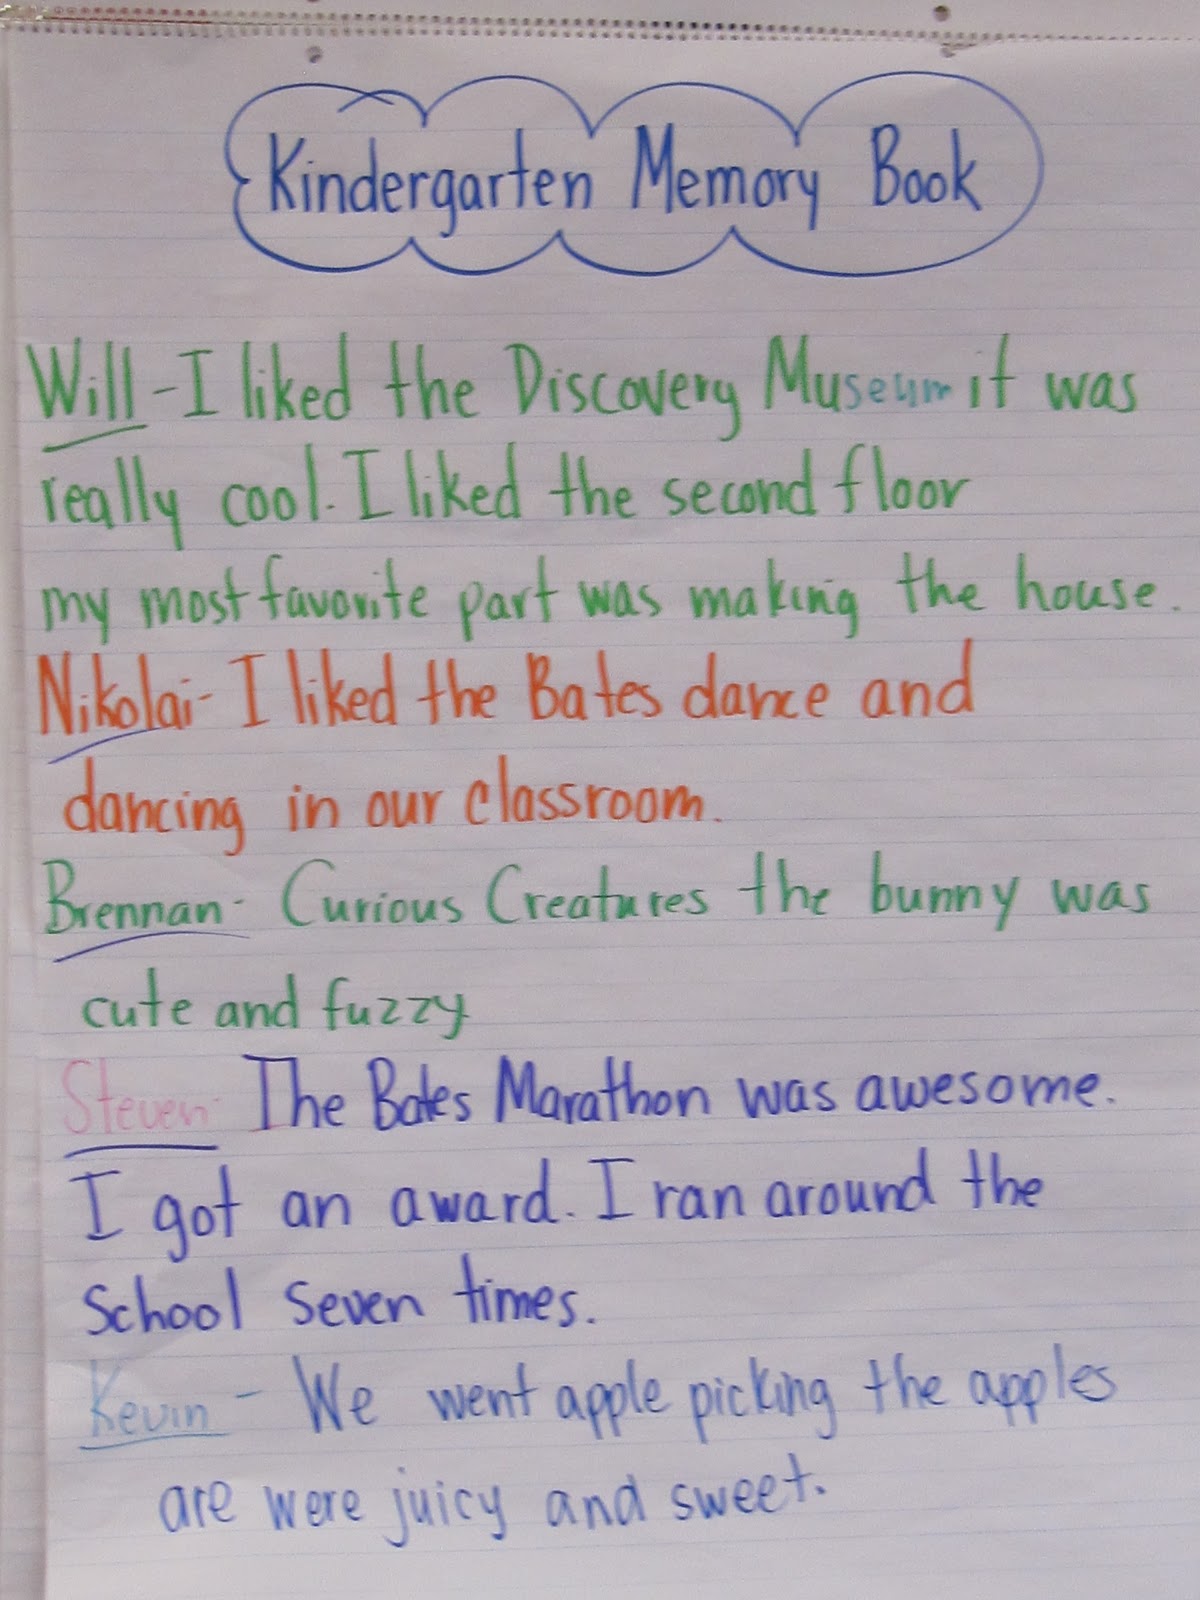 Kindergarten Memory Book
Will - I liked the Discovery Museum it was
really cool. I liked the second floor
my most favorite part was making the house.
Nikolai - I liked the Bates dance and
dancing in our classroom.
Brennan - Curious Creatures the bunny was
cute and fuzzy
Steven - The Bates Marathon was awesome.
I got an award. I ran around the
School seven times.
Kevin - We went apple picking the apples
are were juicy and sweet.